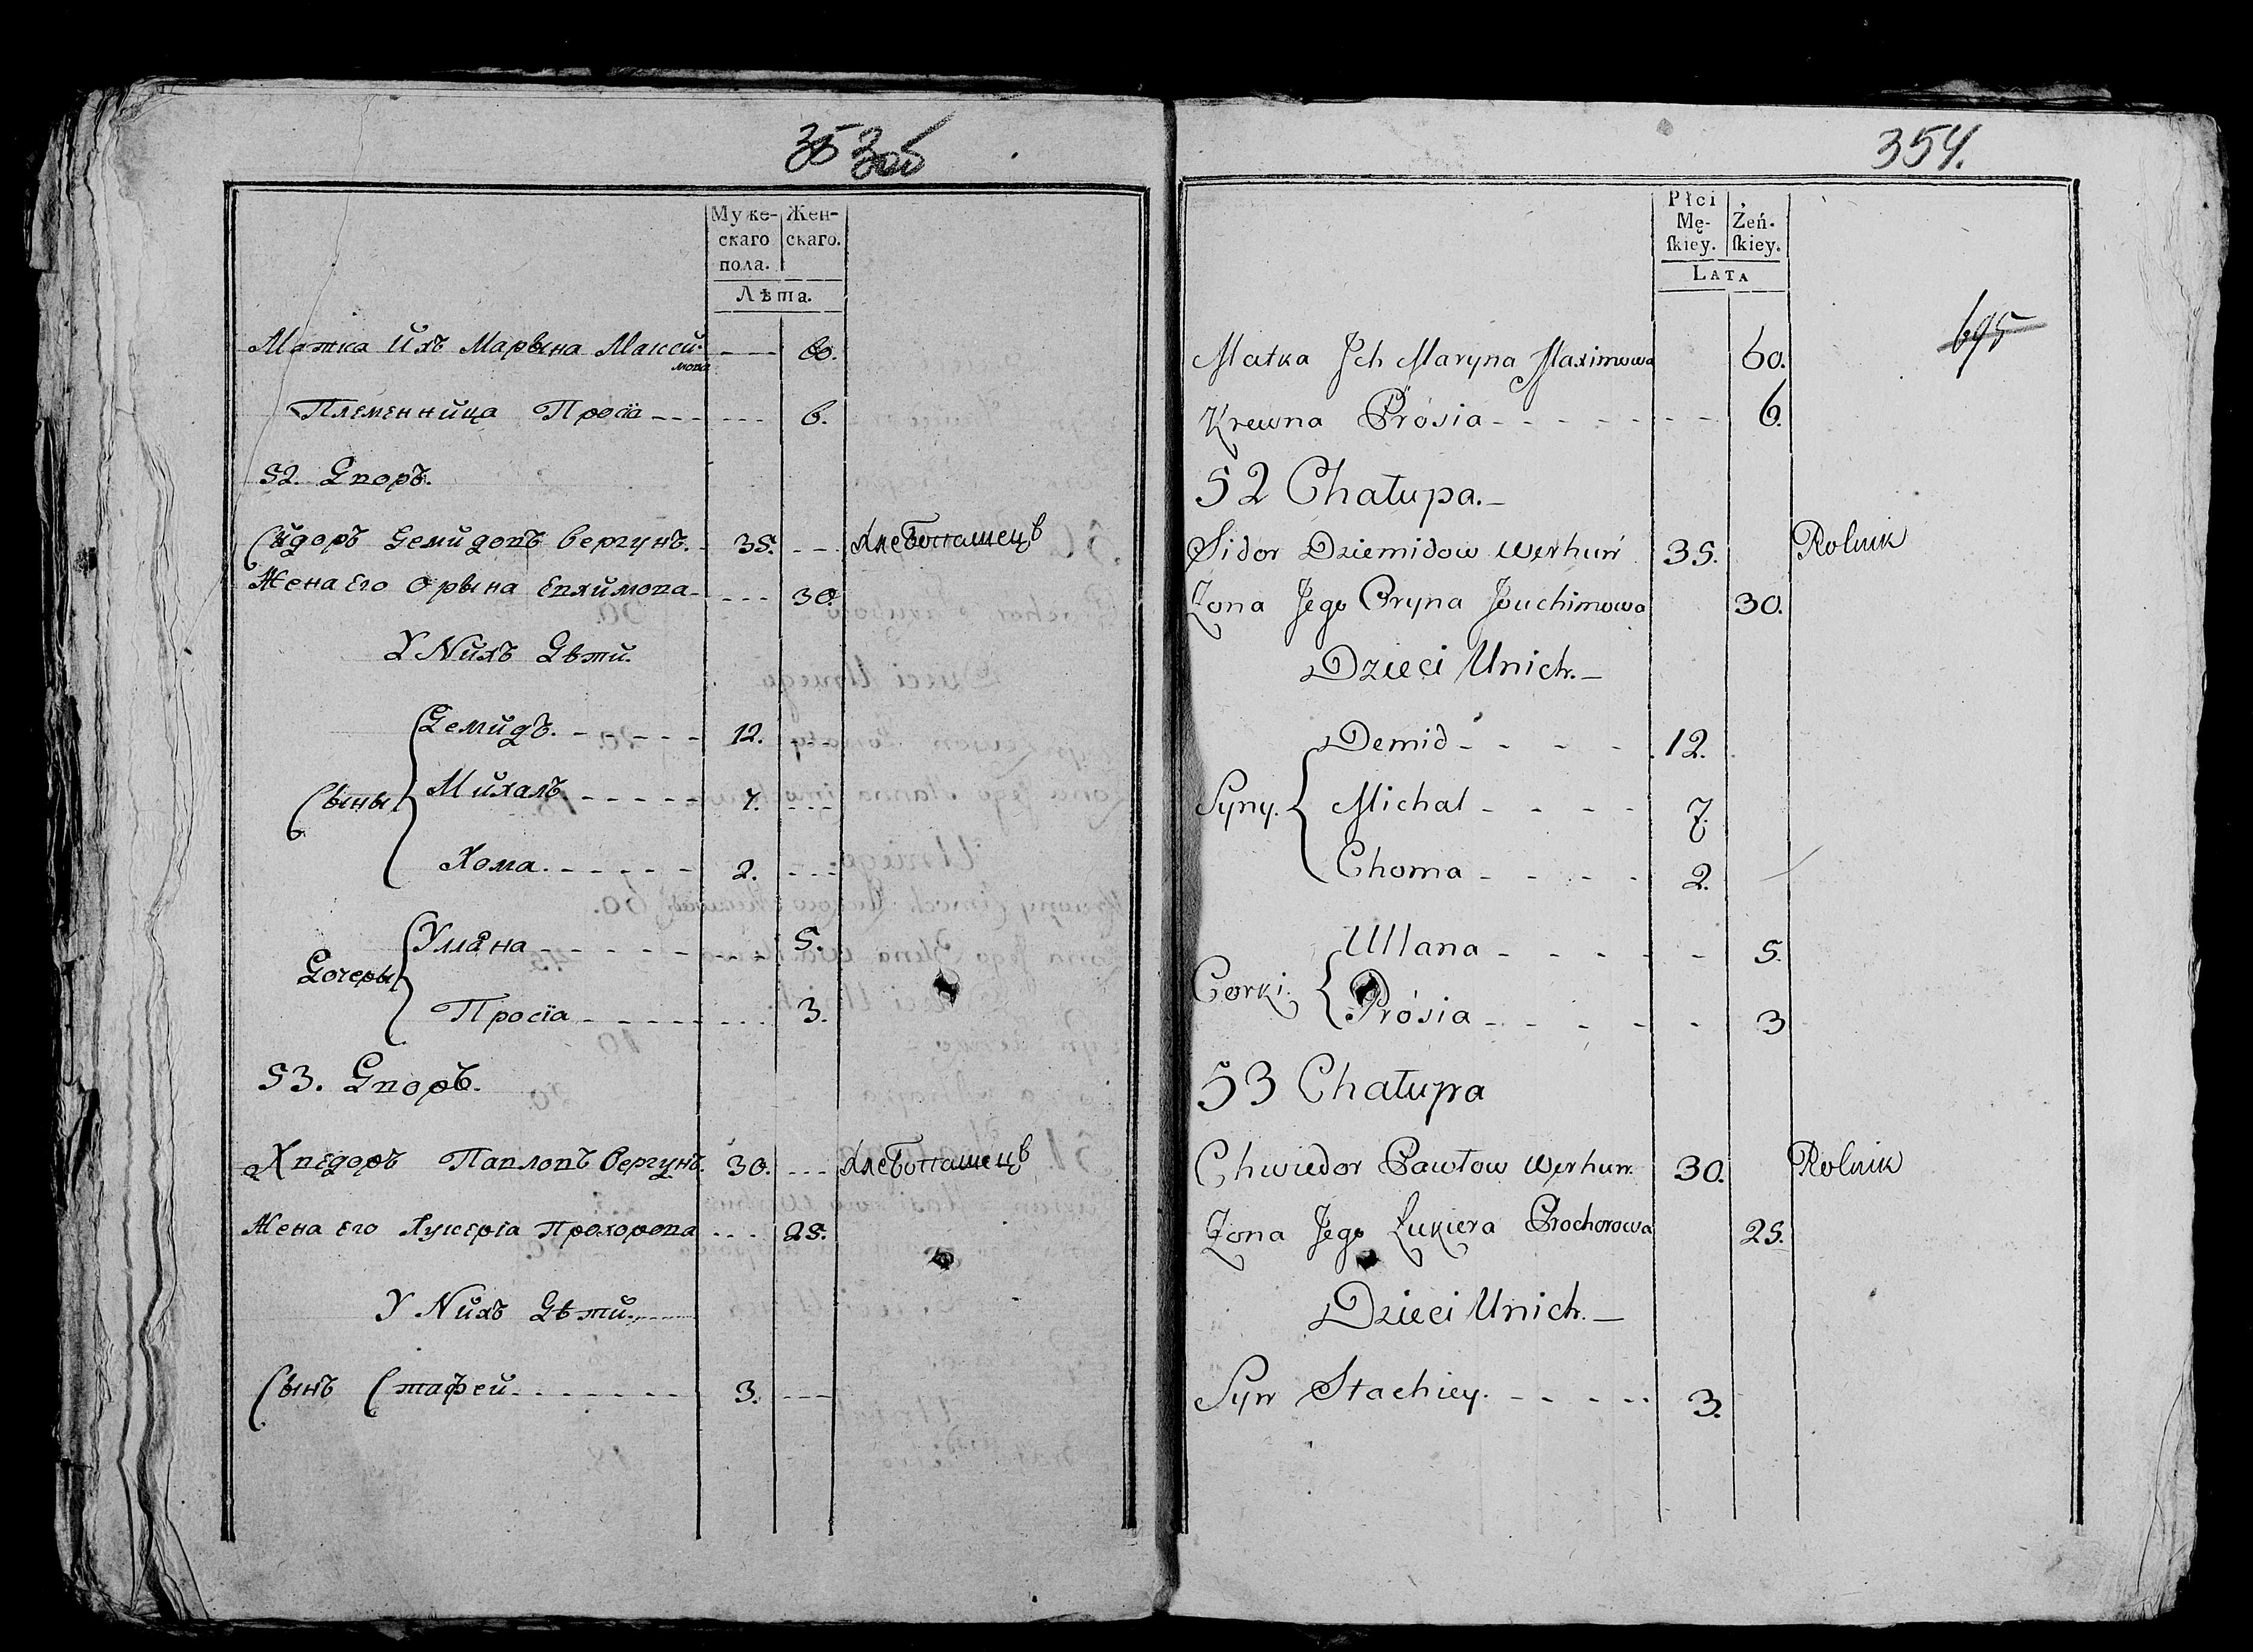 353об
Мужескаго пола.
Женскаго.
Лѣта.
Матка Ихъ Марына Максимова --- 60.
Племенница Просїа --- 6.
52. Дворъ.
Сидоръ Демидовъ Вергунъ. 35. --- Хлебопашецъ
Жена Его Орына Евхимова --- 30.
У Нихъ Дѣти.
Сыны
Демидъ. --- 12. ---
Михалъ --- 7. ---
Хома. --- 2. ---
Дочеры
Уляна --- 5.
Просїа --- 3.
53. Дворъ.
Хведоръ Павловъ Вергунъ. 30. --- Хлебопашецъ
Жена Его Лукерїа Прохорова --- 25.
У Нихъ Дѣти.
Сынъ Стафей --- 3. ---
354.
695
Płci Mę-
ſkiey.
Żeń-
ſkiey.
LATA
Matka Jch Maryna Maximowa 60.
Krewna Prósia --- 6.
52 Chałupa.
Sidor Dziemidow Werhun 35. Rolnik
Zona Jego Oryna Jouchimowa 30.
Dzieci Unich.
Syny.
Demid --- 12.
Michał --- 7.
Choma --- 2.
Corki.
Ullana --- 5.
Prósia --- 3
53 Chałupa
Chwiedor Pawłow Werhun 30. Rolnik
Zona Jego Łukiera Prochorowa 25.
Dzieci Unich.
Syn Stachiey. --- 3.